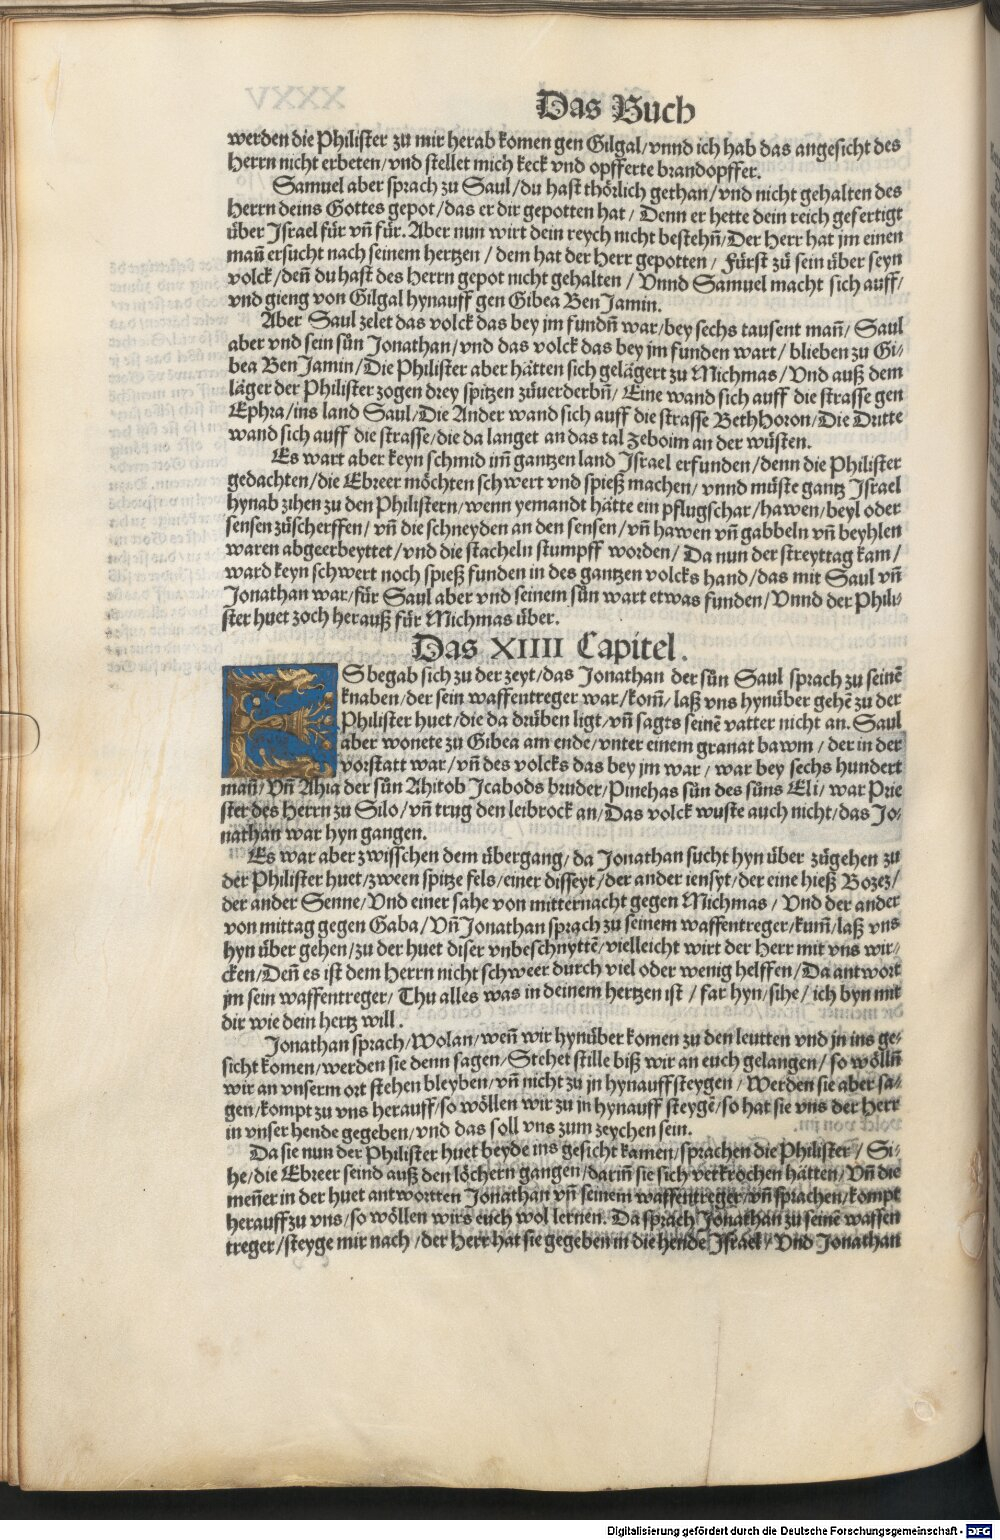 Das Buch
werden die Philister zu mir herab komen gen Gilgal/vnnd ich hab das angesicht des
Herrn nicht erbeten/vnd stellet mich keck vnd opfferte brandopffer.
Samuel aber sprach zu Saul/du hast thörlich gethan/vnd nicht gehalten des
Herrn deins Gottes gepot/das er dir gepotten hat/Denn er hette dein reich gefertigt
über Israel für vn̄ für. Aber nun wirt dein reych nicht bestehn̄/Der Herr hat jm einen
man̄ ersucht nach seinem hertzen/dem hat der Herr gepotten/Fürst zů sein über seyn
volck/den̄ du hast des Herrn gepot nicht gehalten/Vnnd Samuel macht sich auff/
vnd gieng von Gilgal hynauff gen Gibea Ben Jamin.
Aber Saul zelet das volck das bey jm fundn̄ war/bey sechs tausent man̄/Saul
aber vnd sein sün Jonathan/vnd das volck das bey jm funden wart/blieben zu Gi-
bea Ben Jamin/Die Philister aber hätten sich gelägert zu Michmas/Vnd auß dem
läger der Philister zogen drey spitzen zůuerderbn̄/Eine wand sich auff die strasse gen
Ephra/ins land Saul/Die Ander wand sich auff die strasse BethHoron/Die Dritte
wand sich auff die strasse/die da langet an das tal Zeboim an der wüsten.
Es wart aber keyn schmid im̄ gantzen land Israel erfunden/denn die Philister
gedachten/die Ebreer möchten schwert vnd spieß machen/vnnd müste gantz Israel
hynab zihen zu den Philistern/wenn yemandt hätte ein pflugschar/hawen/beyl oder
sensen zůscherffen/vn̄ die schneyden an den sensen/vn̄ hawen vn̄ gabbeln vn̄ beyhlen
waren abgeerbeyttet/vnd die stacheln stumpff worden/Da nun der streyttag kam/
ward keyn schwert noch spieß funden in des gantzen volcks hand/das mit Saul vn̄
Jonathan war/für Saul aber vnd seinem sün wart etwas funden/Vnnd der Phili-
ster huet zoch herauß für Michmas über.
Das XIIII Capitel.
ES begab sich zu der zeyt/das Jonathan der sün Saul sprach zu seinē
knaben/der sein waffentreger war/kom̄/laß vns hynüber gehē zu der
Philister huet/die da drüben ligt/vn̄ sagts seinē vatter nicht an. Saul
aber wonete zu Gibea am ende/vnter einem granat bawm/der in der
vorstatt war/vn̄ des volcks das bey jm war/war bey sechs hundert
man̄/Vn̄ Ahia der sün Ahitob Icabods bruder/Pinehas sün des süns Eli/war Prie
ster des Herrn zu Silo/vn̄ trug den leibrock an/Das volck wuste auch nicht/das Jo-
nathan war hyn gangen.
Es war aber zwisschen dem übergang/da Jonathan sucht hyn über zůgehen zu
der Philister huet/zween spitze fels/einer disseyt/der ander iensyt/der eine hieß Bozez/
der ander Senne/Vnd einer sahe von mitternacht gegen Michmas/Vnd der ander
von mittag gegen Gaba/Vn̄ Jonathan sprach zu seinem waffentreger/kum̄/laß vns
hyn über gehen/zu der huet diser vnbeschnyttē/vielleicht wirt der Herr mit vns wir-
cken/Den̄ es ist dem Herrn nicht schweer durch viel oder wenig helffen/Da antwort
jm sein waffentreger/Thu alles was in deinem hertzen ist/far hyn/sihe/ich byn mit
dir wie dein hertz will.
Jonathan sprach/Wolan/wen̄ wir hynüber komen zu den leutten vnd jn ins ge-
sicht komen/werden sie denn sagen/Stehet stille biß wir an euch gelangen/so wölln̄
wir an vnserm ort stehen bleyben/vn̄ nicht zu jn hynauff steygen/Werden sie aber sa-
gen/kompt zu vns herauff/so wöllen wir zu jn hynauff steygē/so hat sie vns der Herr
in vnser hende gegeben/vnd das soll vns zum zeychen sein.
Da sie nun der Philister huet beyde ins gesicht kamen/sprachen die Philister/Si-
he/die Ebreer seind auß den löchern gangen/darin̄ sie sich verkrochen hätten/Vn̄ die
men̄er in der huet antwortten Jonathan vn̄ seinem waffentreger/vn̄ sprachen/kompt
herauff zu vns/so wöllen wirs euch wol lernen. Da sprach Jonathan zu seinē waffen
treger/steyge mir nach/der Herr hat sie gegeben in die hende Israel/Vnd Jonathan
Digitalisierung gefördert durch die Deutsche Forschungsgemeinschaft - DFG